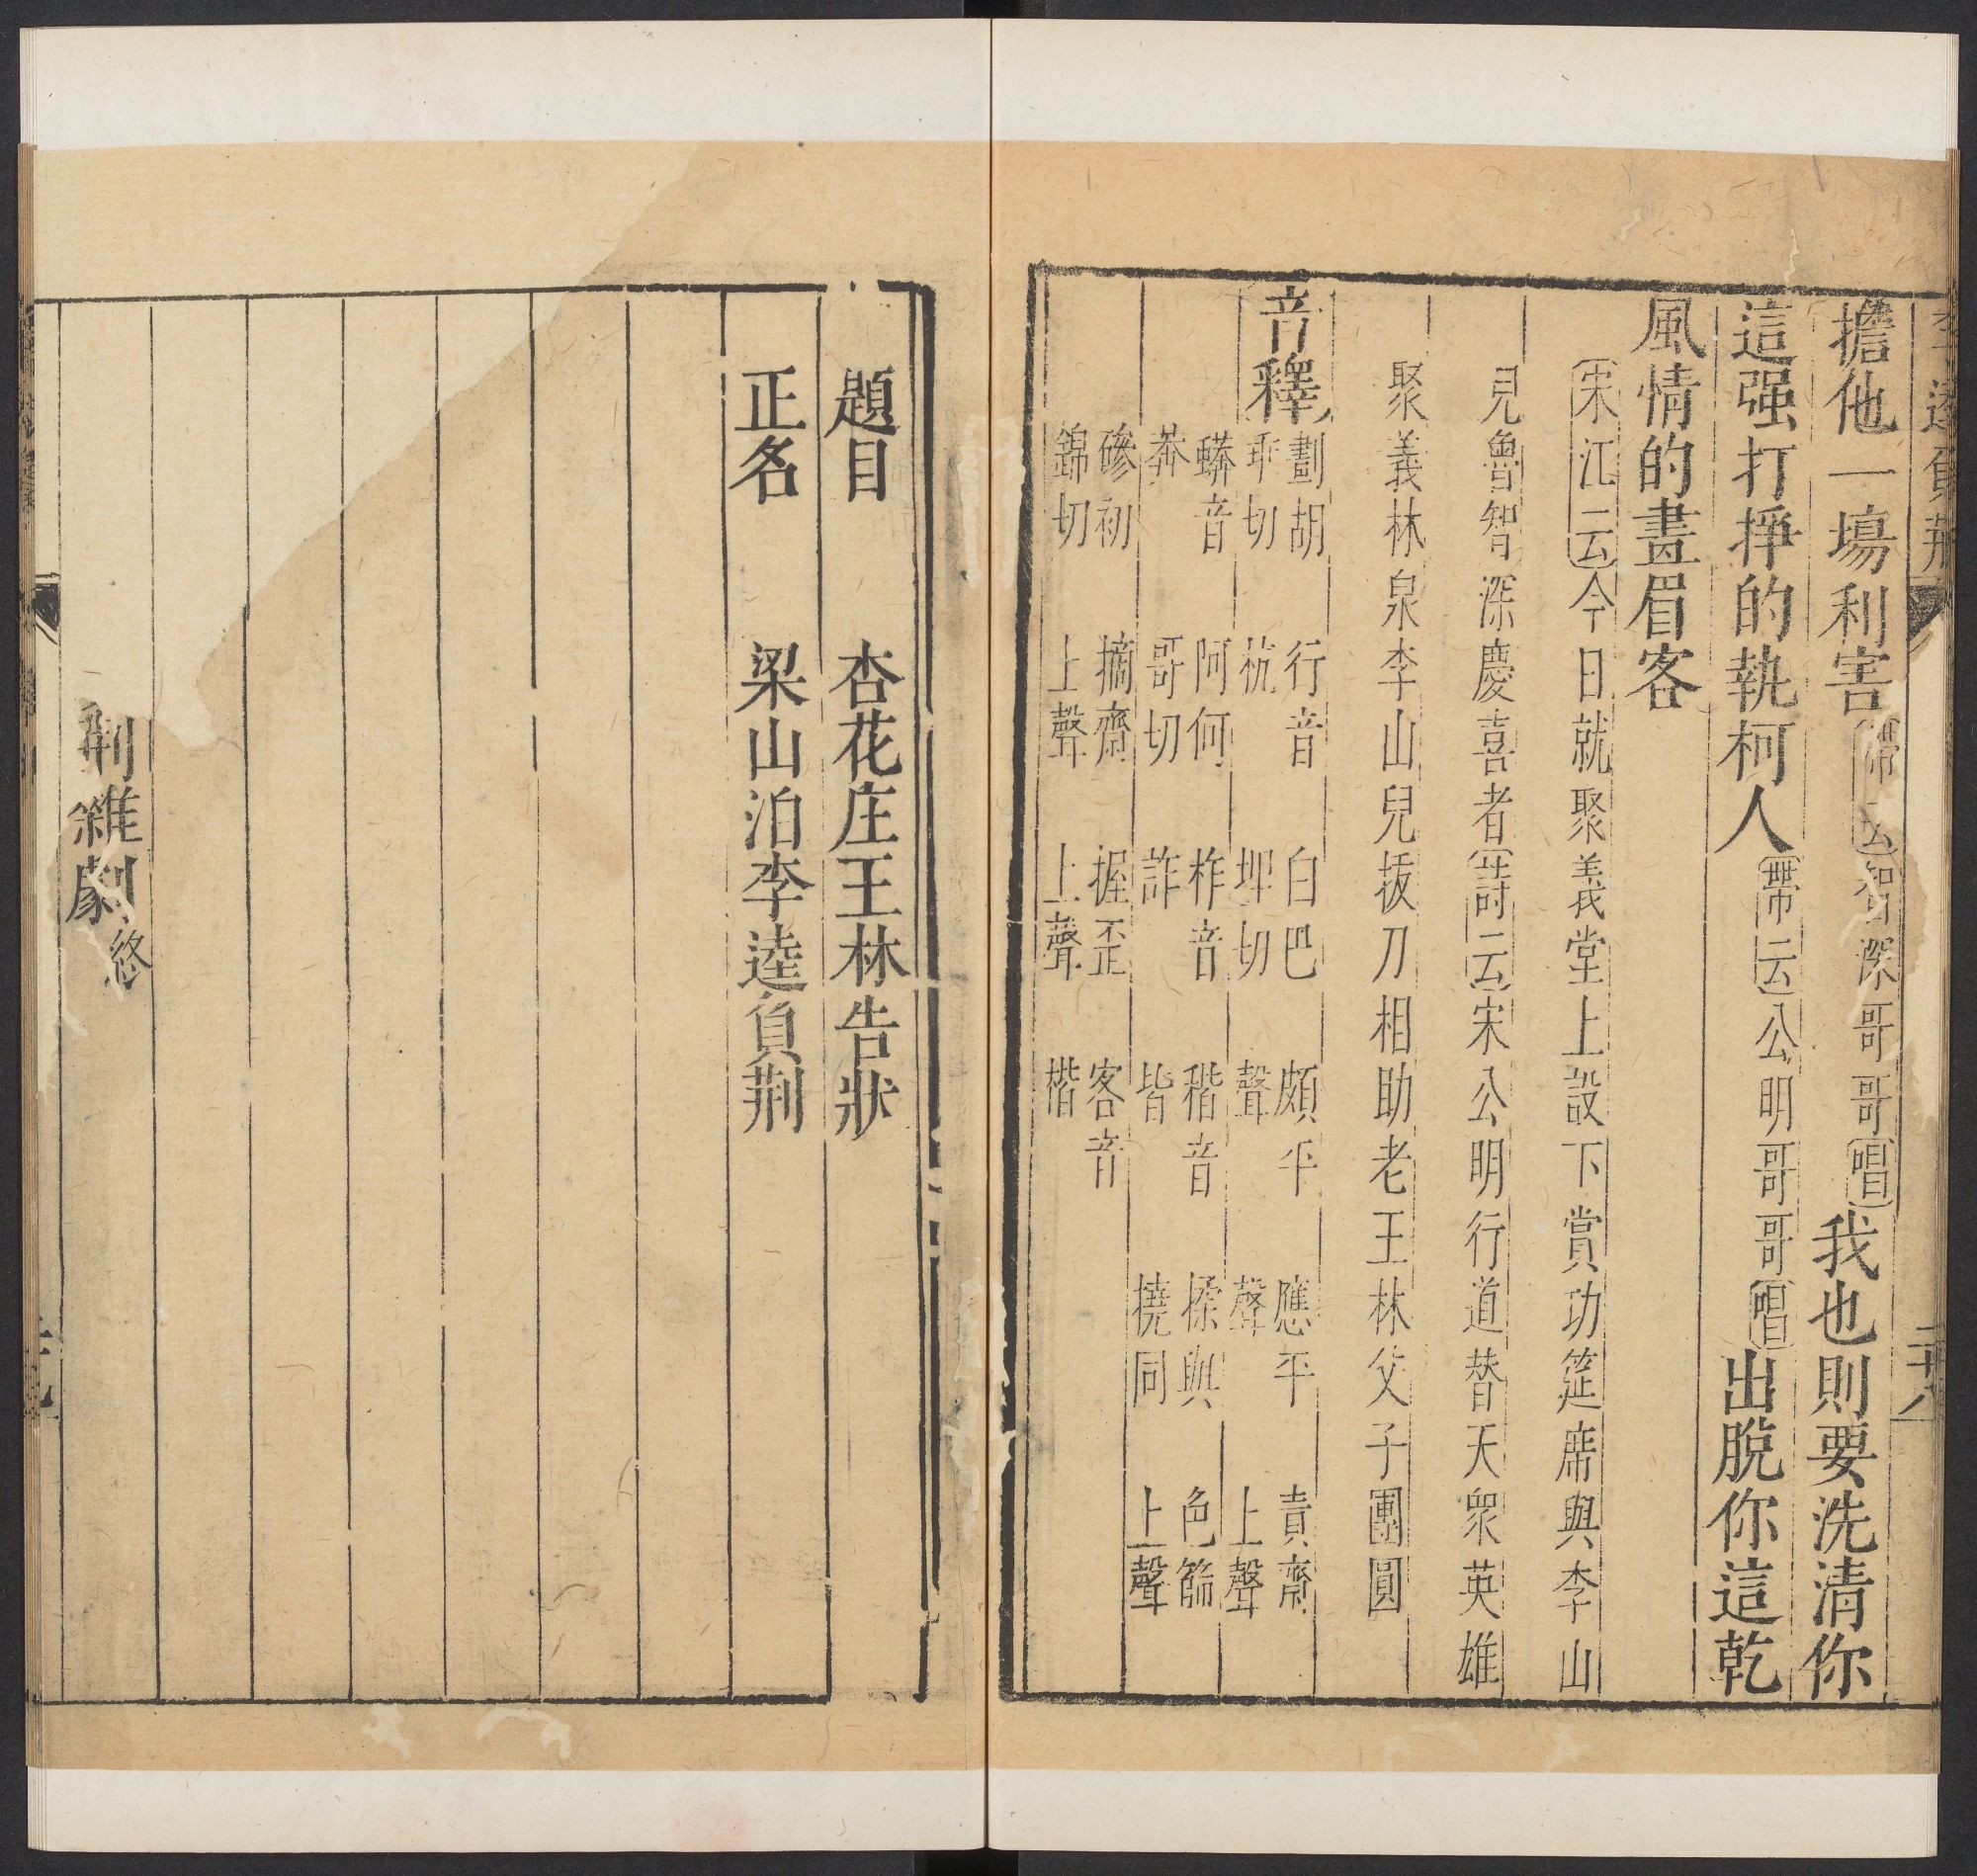 李逵負荊 二十八
擔他一場利害帶云智深哥哥唱我也則要洗清你
這强打掙的執柯人帶云公明哥哥唱出脫你這乾
風情的畫眉客
宋江云今日就聚義堂上設下賞功筵席與李山
兒魯智深慶喜者詩云宋公明行道替天衆英雄
聚義林泉李山兒拔刀相助老王林父子團圓
音釋 劃胡乖切 行音杭 白巴埋切 頗平聲 應平聲 責齋上聲
蟒音莽 阿何哥切 柞音詐 稭音皆 揉與撓同 色篩上聲
磣初錦切 摘齋上聲 握歪上聲 客音楷
題目 杏花庄王林告狀
正名 梁山泊李逵負荊
荊雜劇終